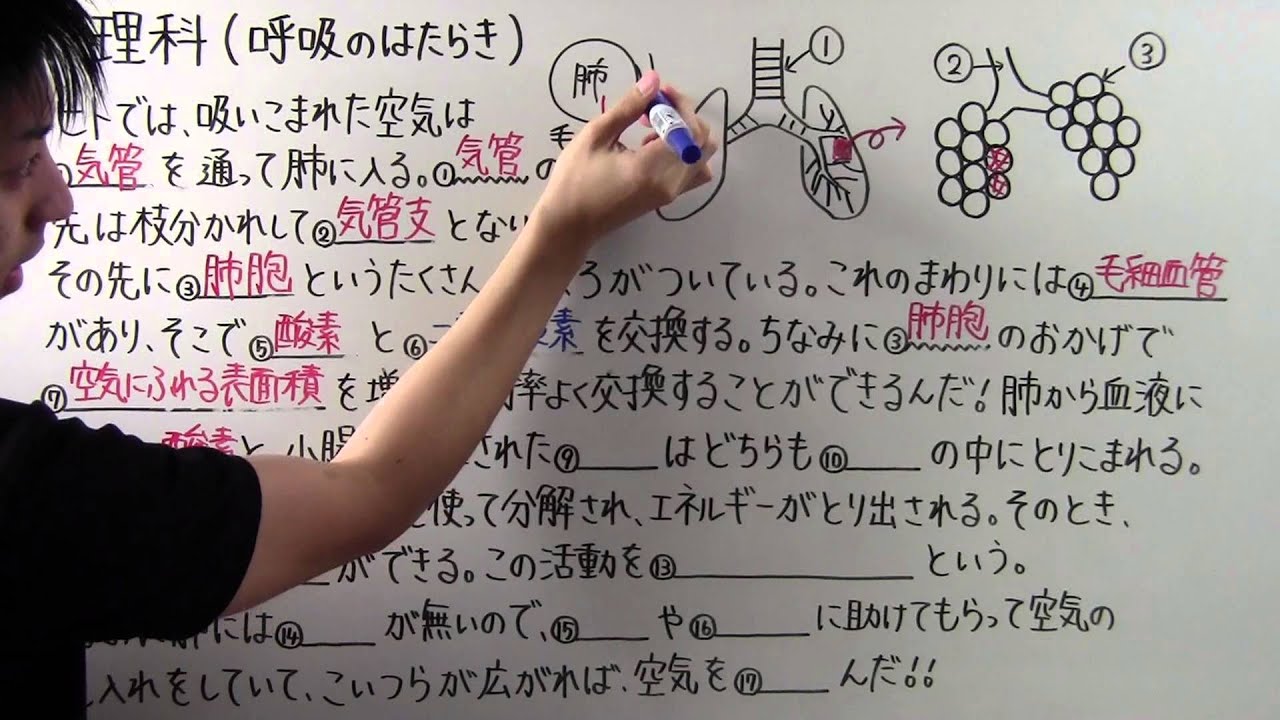 理科(呼吸のはたらき)
肺
①
②
③
ヒトでは、吸いこまれた空気は
気管を通って肺に入る。①気管の
先は枝分かれして②気管支とな
その先に③肺胞というたくさん ろがついている。これのまわりには④毛細血管
があり、そこで⑤酸素と⑥ 素を交換する。ちなみに③肺胞のおかげで
⑦空気にふれる表面積を増 率よく交換することができるんだ!肺から血液に
酸素と、小腸 された⑨____はどちらも⑩____の中にとりこまれる。
使って分解され、エネルギーがとり出される。そのとき、
ができる。この活動を⑬____という。
には⑭____が無いので、⑮____や⑯____に助けてもらって空気の
入れをしていて、こいつらが広がれば、空気を⑰____んだ!!